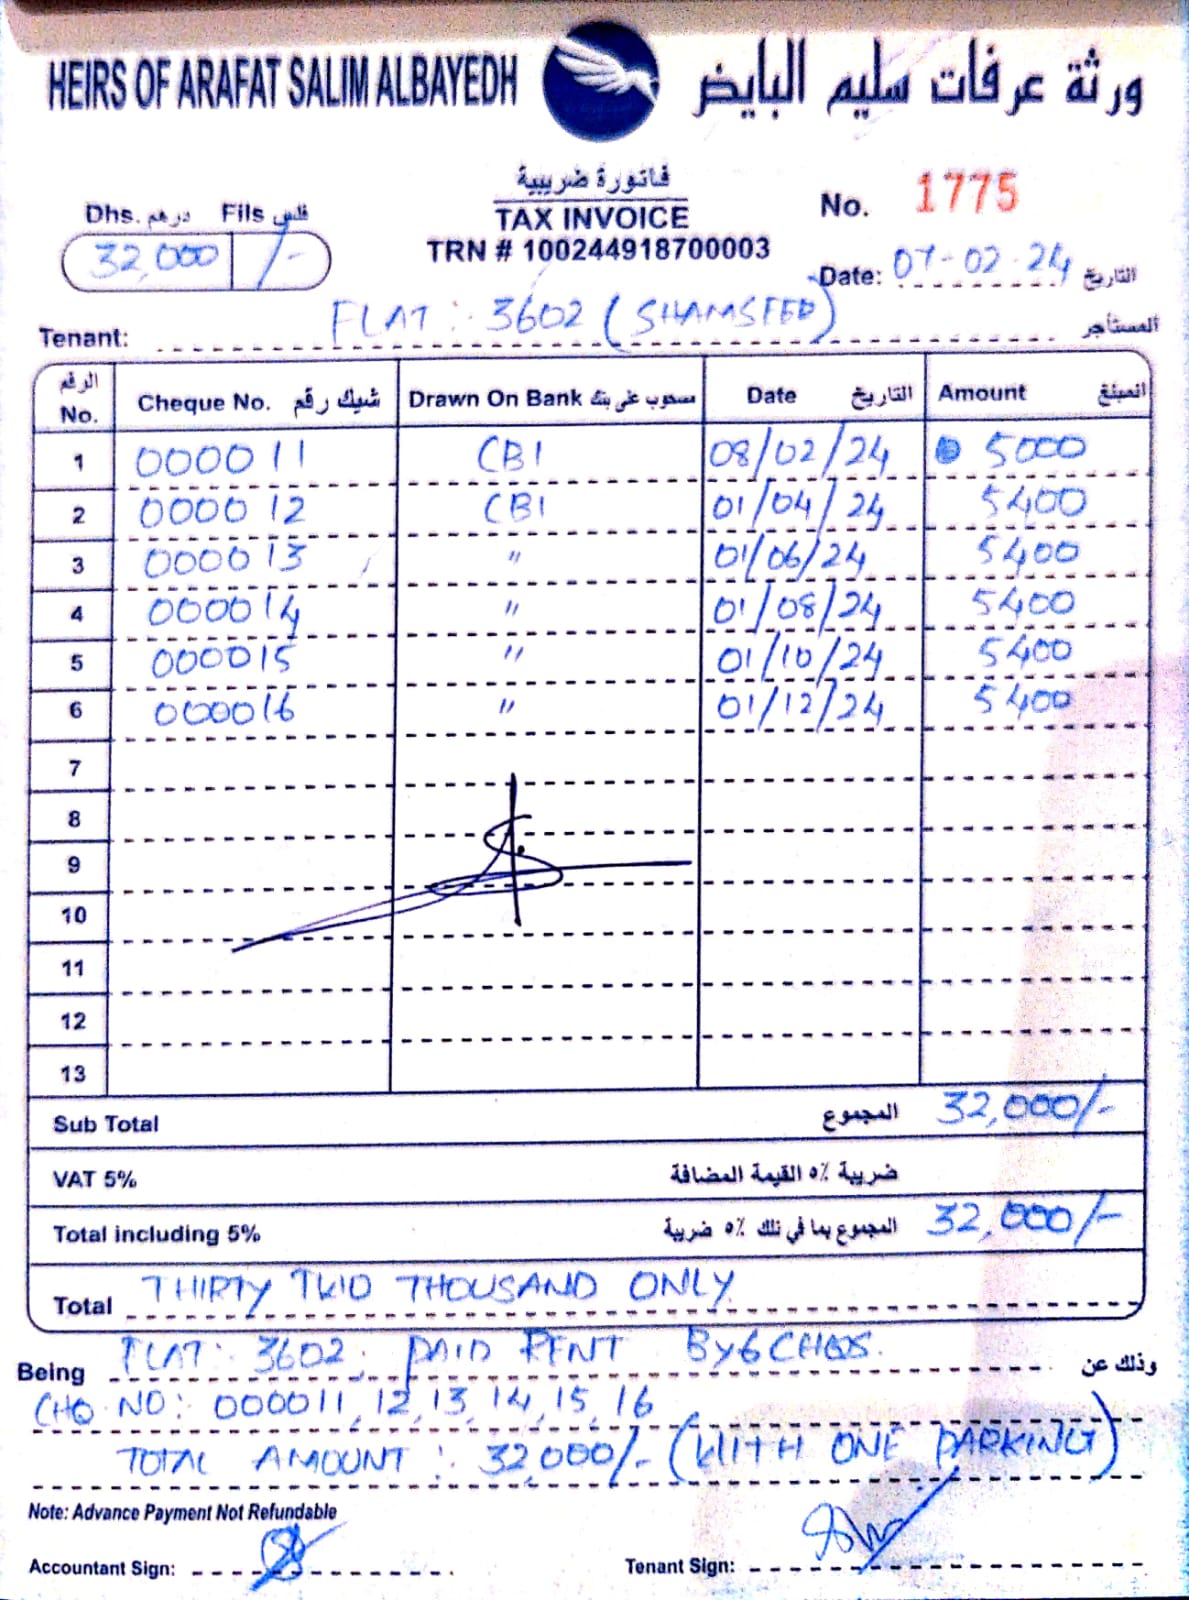 HEIRS OF ARAFAT SALIM ALBAYEDH ورثة عرفات سليم البايض
فاتورة ضريبية
TAX INVOICE
TRN # 100244918700003
Dhs. درهم Fils فلس
32,000 /-
No. 1775
Date: 07-02-24 التاريخ
Tenant: FLAT: 3602 (SHAMSEER) المستأجر
الرقم No. Cheque No. شيك رقم Drawn On Bank مسحوب على بنك Date التاريخ Amount المبلغ
1 0000011 CBI 08/02/24 5000
2 0000012 CBI 01/04/24 5400
3 0000013 " 01/06/24 5400
4 0000014 " 01/08/24 5400
5 000015 " 01/10/24 5400
6 000016 " 01/12/24 5400
7
8
9
10
11
12
13
Sub Total المجموع 32,000/-
VAT 5% ضريبة ٥٪ القيمة المضافة
Total including 5% المجموع بما في ذلك ٥٪ ضريبة 32,000/-
Total THIRTY TWO THOUSAND ONLY
Being FLAT: 3602, PAID RENT BY 6 CHQS. وذلك عن
CHQ NO: 000011, 12, 13, 14, 15, 16
TOTAL AMOUNT: 32,000/- (WITH ONE PARKING)
Note: Advance Payment Not Refundable
Accountant Sign: Tenant Sign: